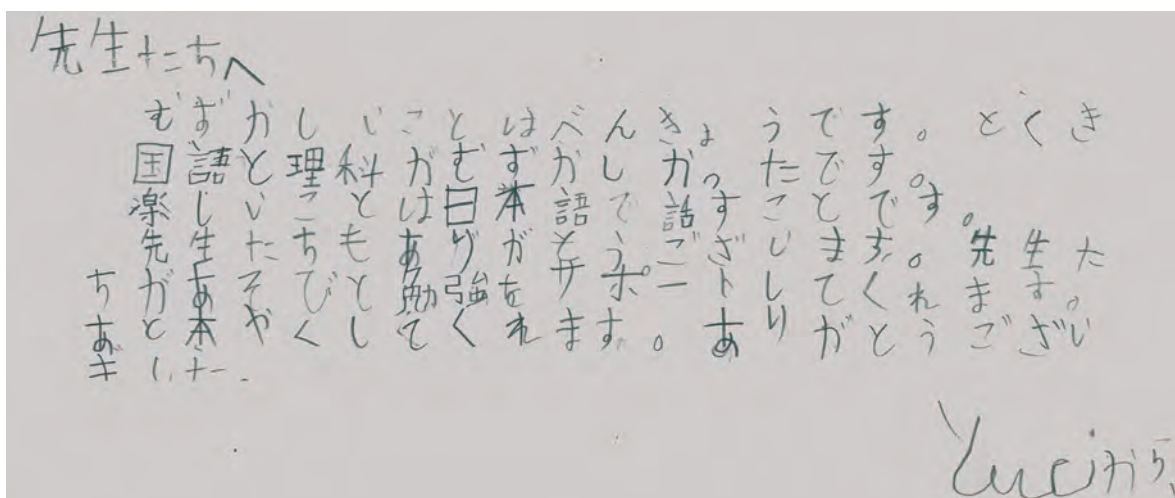 先生たちへ
むずかしいことはべんきょうです。とくき
国語と理科がむずかしかったです。
楽しいことは日本語で話すことです。
先生たちもありがとうございます。先生た
ちがあそびと勉強をサポートしてくれます。
あと本やくしてくれます。ありがとうござい
ました.
Yuciから